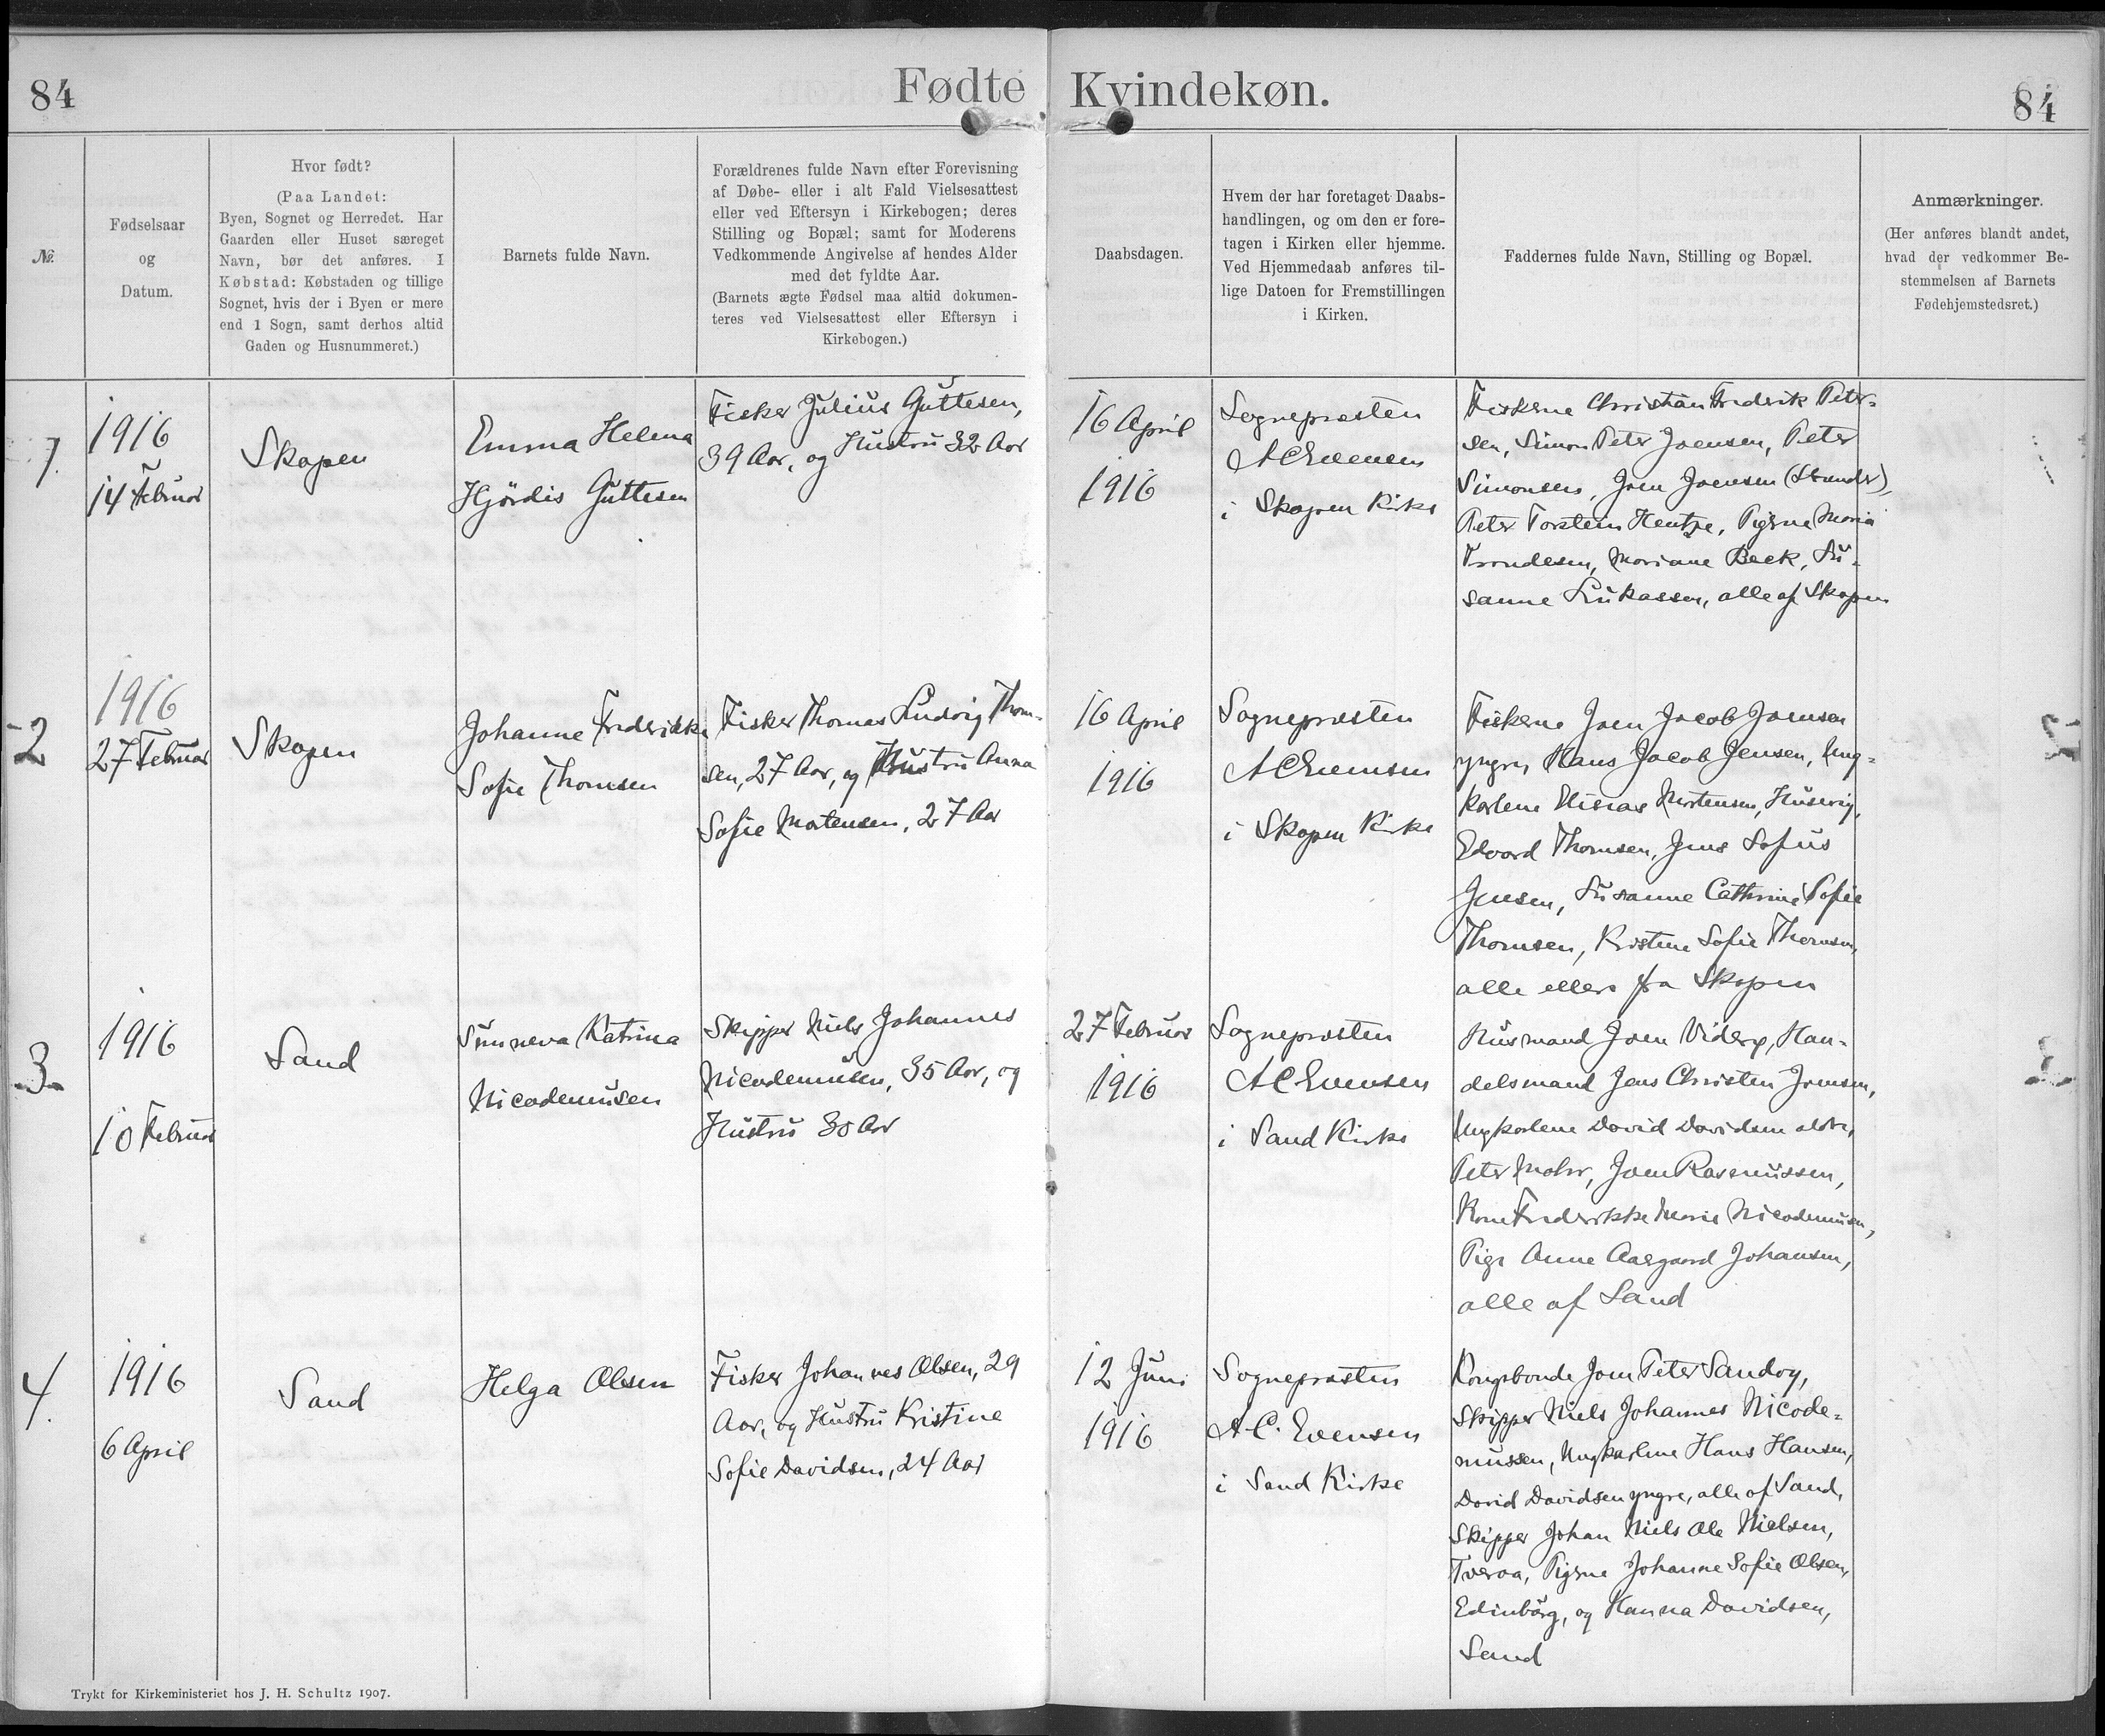 84
Fødte Kvindekøn.
84
№
Fødselsaar
og
Datum.
Hvor født?
(Paa Landet:
Byen, Sognet og Herredet. Har
Gaarden eller Huset særeget
Navn, bør det anføres. I
Købstad: Købstaden og tillige
Sognet, hvis der i Byen er mere
end 1 Sogn, samt derhos altid
Gaden og Husnummeret.)
Barnets fulde Navn.
Forældrenes fulde Navn efter Forevisning
af Døbe- eller i alt Fald Vielsesattest
eller ved Eftersyn i Kirkebogen; deres
Stilling og Bopæl; samt for Moderens
Vedkommende Angivelse af hendes Alder
med det fyldte Aar.
(Barnets ægte Fødsel maa altid dokumen-
teres ved Vielsesattest eller Eftersyn i
Kirkebogen.)
Daabsdagen.
Hvem der har foretaget Daabs-
handlingen, og om den er fore-
tagen i Kirken eller hjemme.
Ved Hjemmedaab anføres til-
lige Datoen for Fremstillingen
i Kirken.
Faddernes fulde Navn, Stilling og Bopæl.
Anmærkninger.
(Her anføres blandt andet,
hvad der vedkommer Be-
stemmelsen af Barnets
Fødehjemstedsret.)
1
1916
14 Februar
Skopen
Emma Helena
Hjördis Guttesen
Fisker Julius Guttesen,
39 Aar, og Hustru 32 Aar
16 April
1916
Sognepræsten
A C Evensen
i Skopen Kirke
Fiskerne Christian Fredrik Peter-
sen, Simon Peter Joensen, Peter
Simonsen, Joen Joensen
Peter Torstein Hentze, Pigerne Maria
Trondesen, Mariane Beck, Su-
sanne Lukassen, alle af Skopen
2
1916
27 Februar
Skopen
Johanne Frederikke
Sofie Thomsen
Fisker Thomas Ludvig Thom-
sen, 27 Aar, og Hustru Anna
Sofie Mortensen, 27 Aar
16 April
1916
Sognepræsten
A C Evensen
i Skopen Kirke
Fiskerne Joen Jacob Joensen
yngre, Hans Jacob Jensen, Ung-
karlene Mortensen, Husevig,
Edvard Thomsen, Jens Sofus
Jensen, Susanne Cathrine Sofie
Thomsen, Kristine Sofie Thomsen,
alle ellers fra Skopen
3
1916
10 Februar
Sand
Sunneva Katrina
Nicodemusen
Skipper Niels Johannes
Nicodemusen, 35 Aar, og
Hustru 30 Aar
27 Februar
1916
Sognepræsten
A C Evensen
i Sand Kirke
Husmand Joen Viderø, Han-
delsmand Jens Christen Joensen,
Ungkarlene David Davidsen ældre,
Peter Mohr, Joen Rasmussen,
Kone Frederikke Marie Nicodemusen,
Pige Anne Aasgaard Johansen,
alle af Sand
4
1916
6 April
Sand
Helga Olsen
Fisker Johannes Olsen, 29
Aar, og Hustru Kristine
Sofie Davidsen, 24 Aar
12 Juni
1916
Sognepræsten
A. C. Evensen
i Sand Kirke
Kongsbonde Joen Peter Sandoy,
Skipper Niels Johannes Nicode-
mussen, Ungkarlene Hans Hansen,
David Davidsen yngre, alle af Sand,
Skipper Johan Niels Ole Nielsen,
Tveraa, Pigerne Johanne Sofie Olsen,
Edinburg, og Hanna Davidsen,
Sand
Trykt for Kirkeministeriet hos J. H. Schultz 1907.